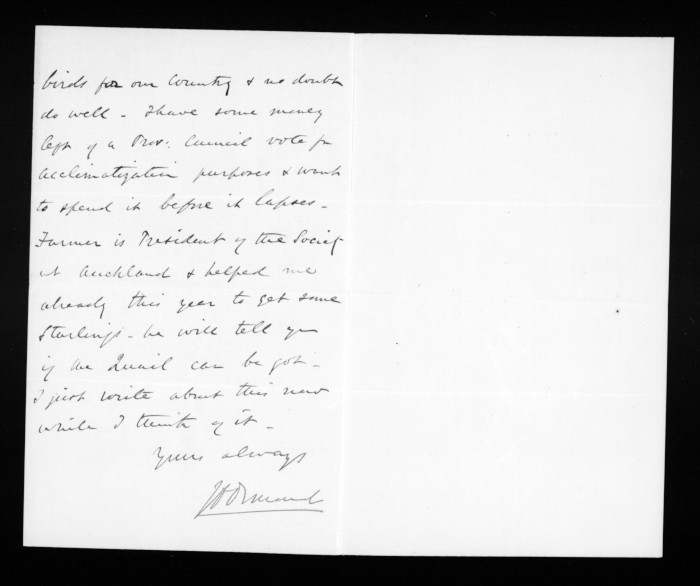 birds for our Country & no doubt
do well - I have some money
left of a Prov: Council vote for
acclimatization purposes & want
to spend it before it lapses -
Farmer is President of the Society
at Auckland & helped me
already this year to get some
Starlings - he will tell you
if the Quail can be got -
I just write about this now
while I think of it -
Yours always
J D Ormond